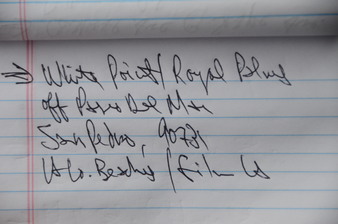 ⇒ White Point/Royal Palms
off Paseo Del Mar
San Pedro, 90731
LA Co. Beaches/Film LA